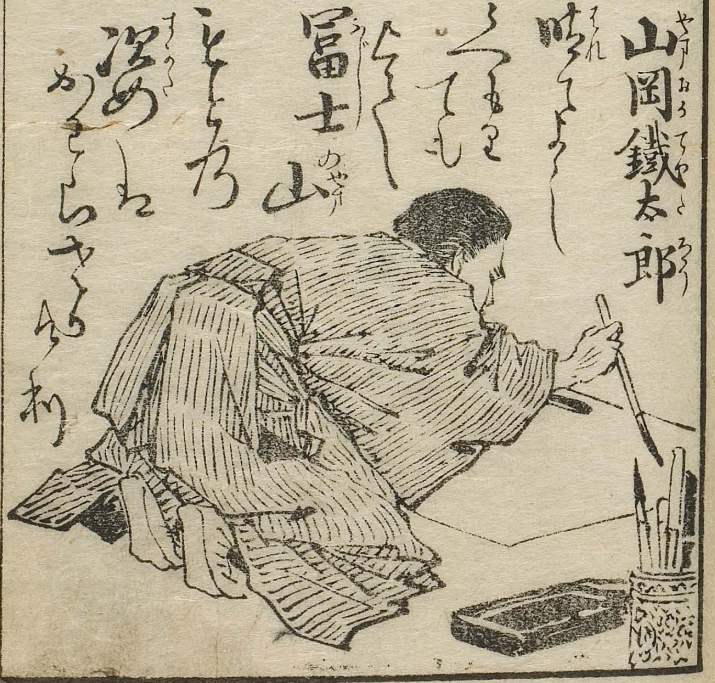 山岡鐵太郎
晴てよし
くもり
ても
よし
冨士山
もと乃
姿は
かはらさり
け利